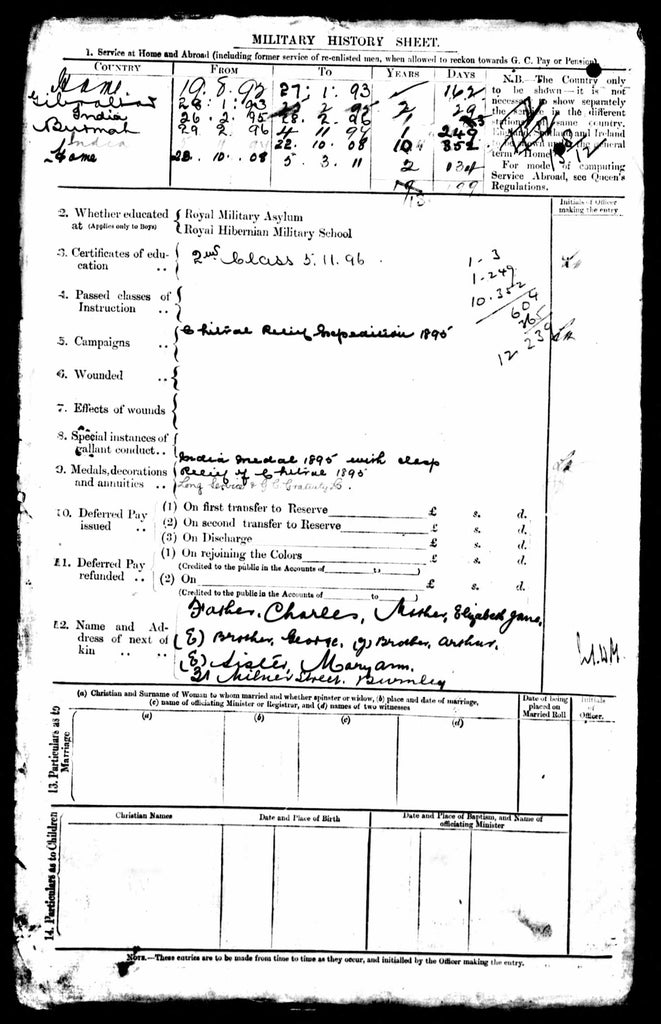 MILITARY HISTORY SHEET.
1. Service at Home and Abroad (including former service of re-enlisted men, when allowed to reckon towards G. C. Pay or Pension).
COUNTRY FROM TO YEARS DAYS
Home 19. 8. 92 27. 1. 93 162
Gibraltar 28. 1. 93 2 29
India 26. 2. 95 28. 2. 96 1
Burmah 29. 2. 96 4. 11. 96 249
India 22. 10. 08 10
Home 22. 10. 08 5. 3. 11 2
N.B. The Country only to be shown—it is not necessary to show separately the service in the different stations in the same country. England, Scotland and Ireland to be shown under the general term "Home."
For mode of computing Service Abroad, see Queen's Regulations.
Initials of Officer making the entry
2. Whether educated at (Applies only to Boys) Royal Military Asylum
Royal Hibernian Military School
3. Certificates of education .. 2nd Class 5. 11. 96
1 - 3
1 - 249
10. 352
604
365
12 239
4. Passed classes of Instruction ..
5. Campaigns .. Chitral Relief Expedition 1895
6. Wounded ..
7. Effects of wounds
8. Special instances of gallant conduct..
9. Medals, decorations and annuities .. India medal 1895 with clasp
Relief of Chitral 1895
Long Service & G C Gratuity
10. Deferred Pay issued .. (1) On first transfer to Reserve £ s. d.
(2) On second transfer to Reserve £ s. d.
(3) On Discharge £ s. d.
11. Deferred Pay refunded .. (1) On rejoining the Colors £ s. d.
(Credited to the public in the Accounts of to )
(2) On £ s. d.
(Credited to the public in the Accounts of to )
12. Name and Address of next of kin .. .. Father, Charles, Mother, Elizabeth Jane,
(E) Brother, George, (y) Brother, Arthur,
(E) Sister, Maryann.
31 Milner Street. Burnley
13. Particulars as to Marriage
(a) Christian and Surname of Woman to whom married and whether spinster or widow, (b) place and date of marriage,
(c) name of officiating Minister or Registrar, and (d) names of two witnesses
Date of being placed on Married Roll
Initials of Officer.
(a) (b) (c) (d)
14. Particulars as to Children
Christian Names Date and Place of Birth Date and Place of Baptism, and Name of officiating Minister
NOTE.—These entries are to be made from time to time as they occur, and initialled by the Officer making the entry.